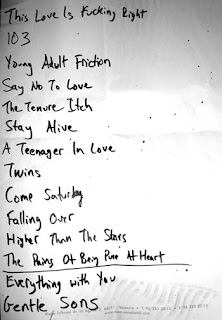 This Love Is Fucking Right
103
Young Adult Friction
Say No To Love
The Tenure Itch
Stay Alive
A Teenager In Love
Twins
Come Saturday
Falling Over
Higher Than The Stars
The Pains Of Being Pure At Heart
Everything with You
Gentle Sons